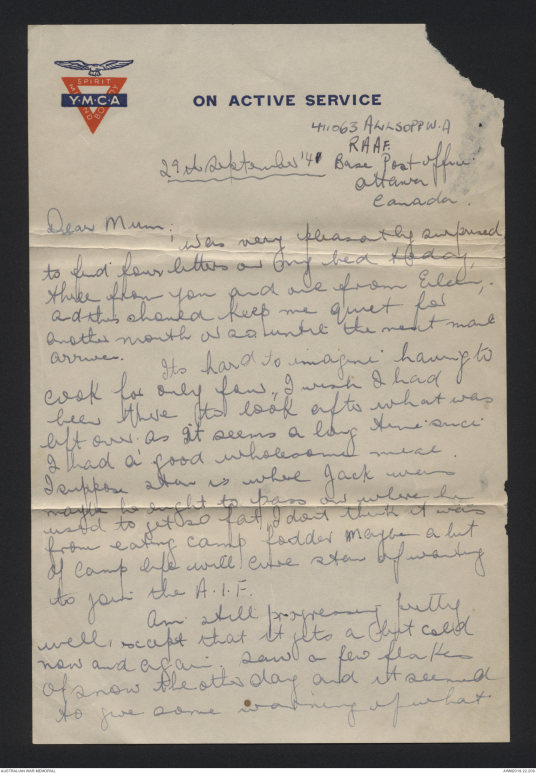 SPIRIT
MIND
Y·M·C·A
BODY
ON ACTIVE SERVICE
411063 Allsopp W.A
RAAF
29th September '41 Base Post Office
Ottawa
Canada.
Dear Mum;
I was very pleasantly surprised
to find four letters on my bed today,
three from you and one from Eileen,
and this should keep me quiet for
another month or so until the next mail
arrives.
Its hard to imagine having to
cook for only four, I wish I had
been there to look after what was
left over as it seems a long time since
I had a good wholesome meal.
I suppose Stan is where Jack was
maybe he ought to pass on where he
used to get so fat, I don't think it was
from eating camp fodder maybe a bit
of camp life will cure Stan of wanting
to join the A.I.F.
Am still progressing pretty
well, except that it gets a bit cold
now and again. Saw a few flakes
of snow the other day and it seemed
to give some warning of what
AUSTRALIAN WAR MEMORIAL